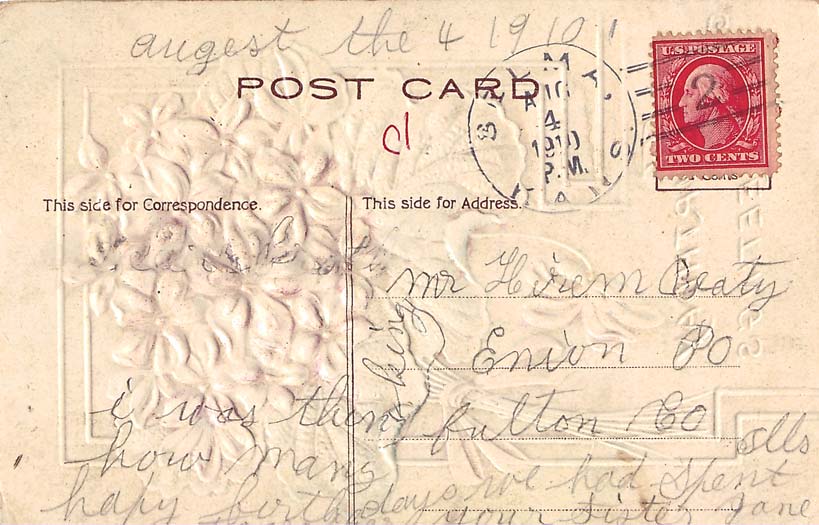 augest the 4 1910
POST CARD
d
AUG
4
1910
P.M.
KANS
U.S. POSTAGE
2
TWO CENTS
This side for Correspondence.
This side for Address.
mr Hirem Beaty
Enion PO
fulton Co
ills
i was thenking
how many
hapy birthdays we had spent
your sister Jane